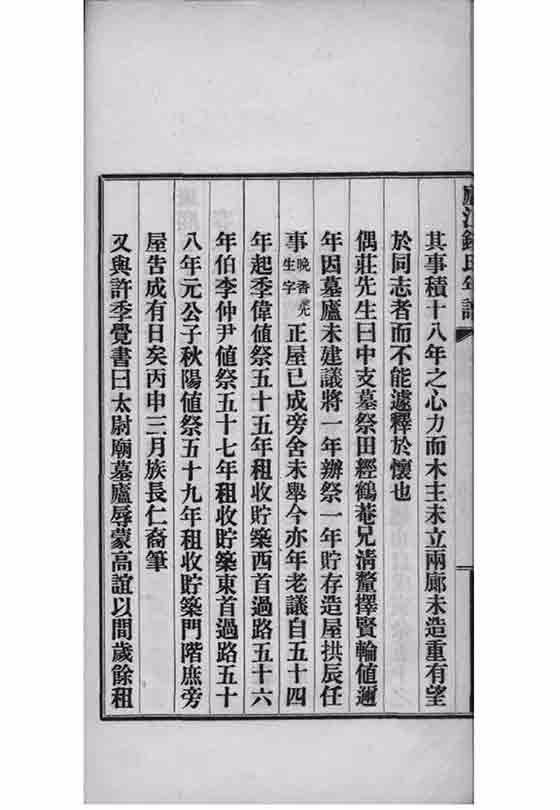 廬江錢氏年譜
其事積十八年之心力而木主未立兩廊未造重有望
於同志者而不能遽釋於懷也
偶莊先生曰中支墓祭田經鶴菴兄淸釐擇賢輪値邇
年因墓廬未建議將一年辦祭一年貯存造屋拱辰任
事晚香先生字正屋已成旁舍未舉今亦年老議自五十四
年起季偉値祭五十五年租收貯築西首過路五十六
年伯李仲尹値祭五十七年租收貯築東首過路五十
八年元公子秋陽値祭五十九年租收貯築門階庶旁
屋告成有日矣丙申三月族長仁裔筆
又與許季覺書曰太尉廟墓廬辱蒙高誼以間歲餘租